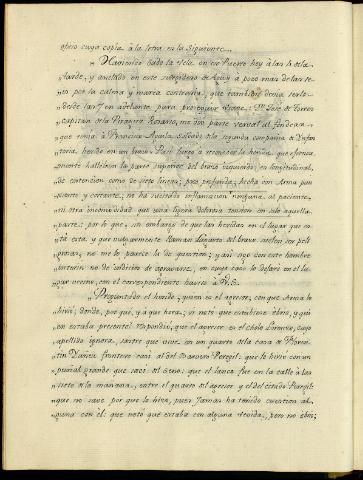 oficio cuya copia à la letra es la siguiente
Haviendo dado la Vela en ese Puerto hoy à las
tarde, y anclado en este surgidero de à poco mas de las se-
tes por la calma y marea contraria, que tambien devia serlo
desde las en adelante para proseguir : Dn. José de Torres
capitan de la Piragua Rosario, me dió parte verval al fondear
que tenia à Francisco Ayala, Soldado de la segunda compañia de Infan-
teria, herido en un brazo. Pasé luego à reconocer la herida, que efectiva-
mente hallé en la parte superior del brazo izquierdo, en longitudinal,
de extencion como de siete lineas, poco profunda, hecha con Arma pun-
zante y cortante, no ha sucitado inflamacion ninguna al paciente,
ni otra incomodidad que una ligera dolencia tension en sola aquella
parte: por lo que, sin embargo de que las heridas en el lugar que es-
tá esta, y que vulgarmente llaman Lagarto del brazo suelen ser peli-
grosas, no me lo parece la de question; y asi sigo con este hombre
interin no dé indicios de agravarse, en cuyo caso lo dejaré en el lu-
gar vecino, con el correspondiente haviso à V. S.
Preguntado el herido, quien es el agresor, con que Arma lo
hirió, donde, por que, y à que hora; si noto que estubiese ebrio, y qui-
en estaba presente? respondió, que el agresor es el cholo Lorenzo, cuyo
apellido ignora, sastre que vive en un quarto de la casa de Floren-
tin frontero casi al del Barvero Perezil: que le hirió con un
puñal grande que sacó del seno: que el lance fue en la calle à las
siete de la mañana, entre el quarto del agresor y el del citado Perezil:
que no save por que lo hirio, pues jamas ha tenido cuestion al-
guna con él: que notó que estaba con alguna bevida, pero no ebrio;